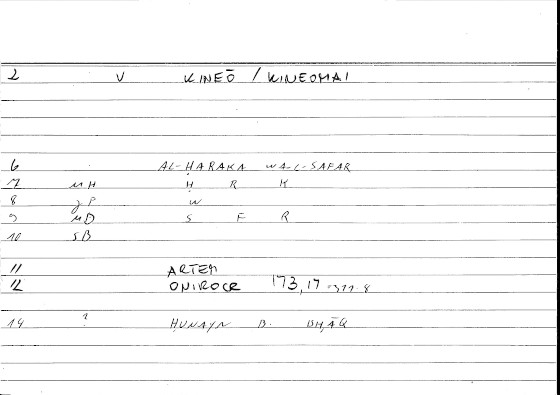 2 V KINEŌ / KINEOMAI
6 AL-ḤARAKA WA-L-SAFAR
7 MH Ḥ R K
8 gP W
9 MD S F R
10 SB
11 ARTEM
12 ONIROCR 173,17
14 ? ḤUNAYN B.